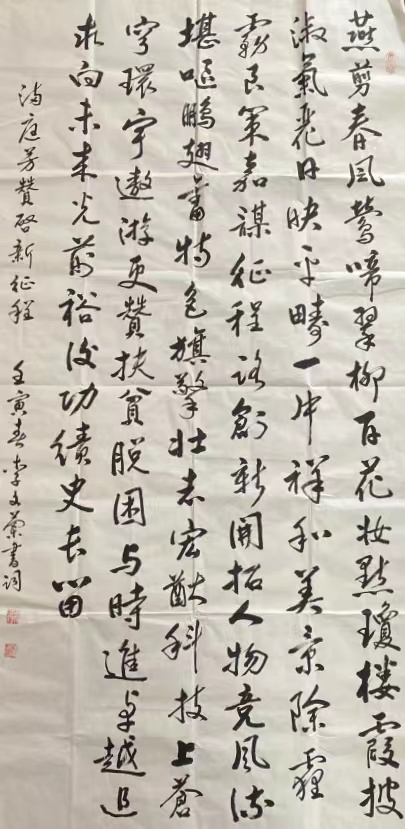 燕剪春风莺啼翠柳百花妆点琼楼霞披
淑氣飛日映平畴一片祥和美景除霾
霧良策嘉谋征程路創新開拓人物竞风流
堪呕鹏翅奮特色旗擎壮志宏猷科技上蒼
穹環宇遨游更贊扶貧脱困与時進卓越追
求向未来光前裕後功績史长留
满庭芳贊啓新征程 壬寅春李文蘭書词